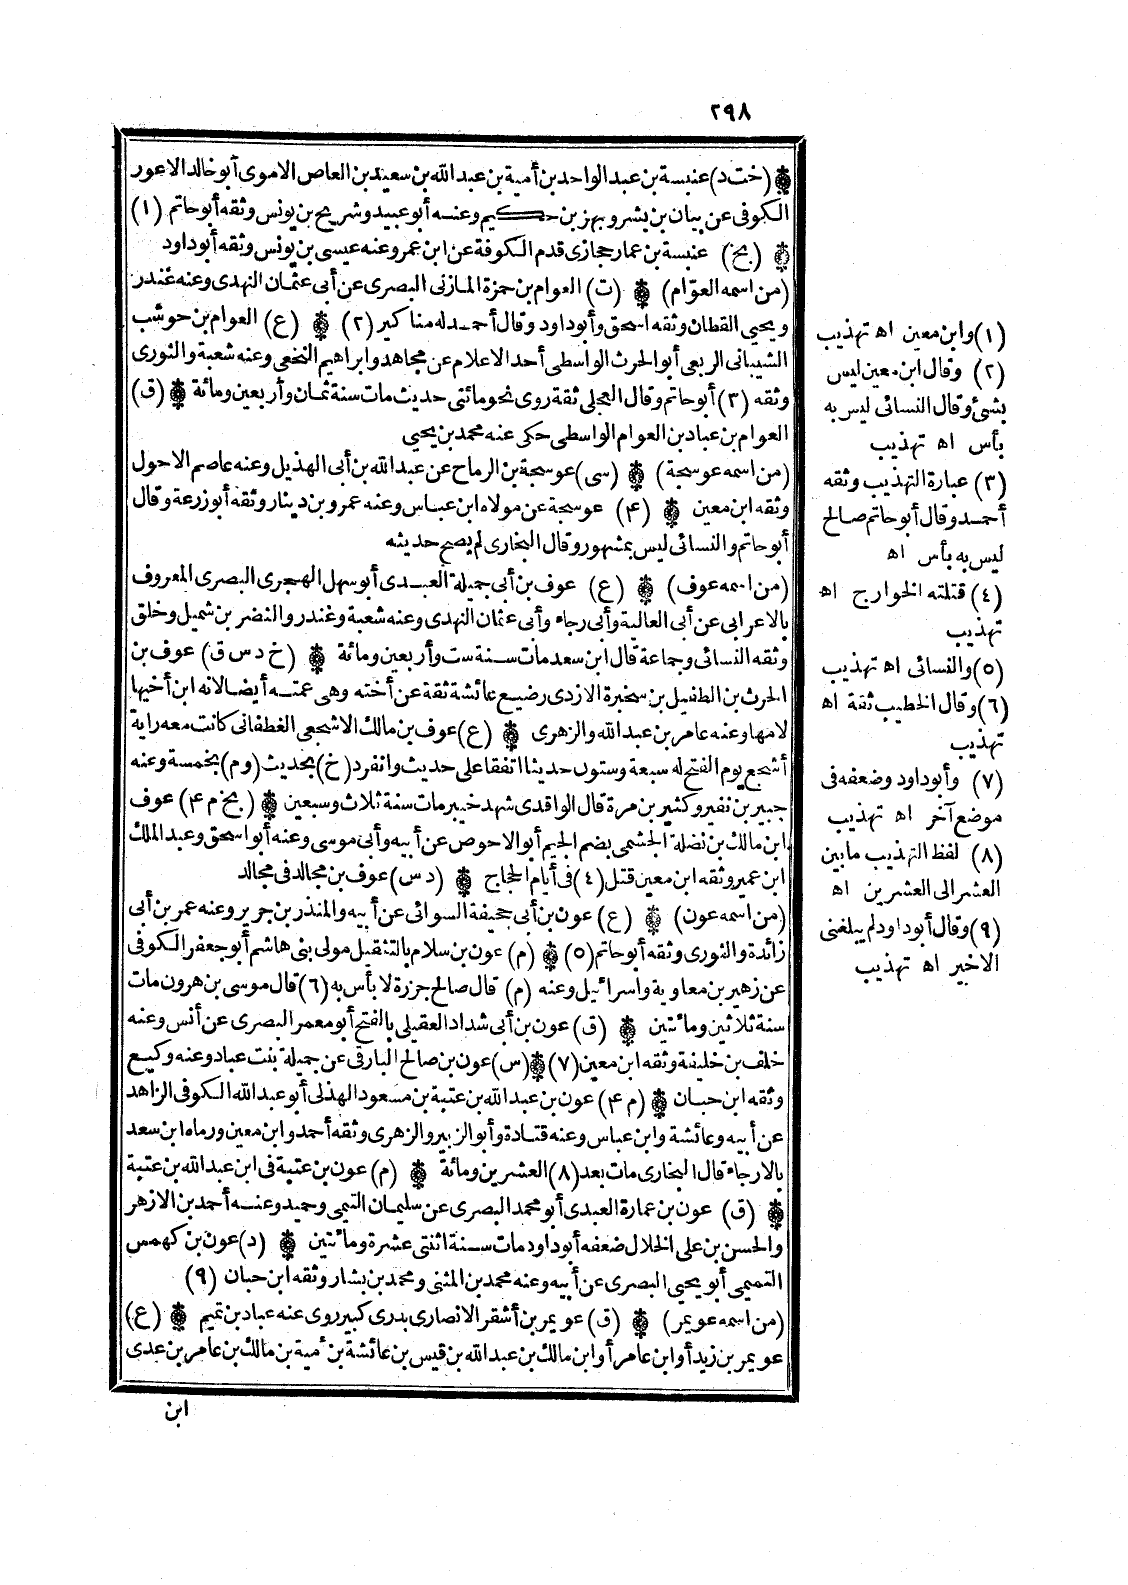 ٢٩٨
(خت د) عنبسة بن عبد الواحد بن أمية بن عبد الله بن سعيد بن العاص الاموى أبو خالد الاعور
الكوفى عن بيان بن بشر وبهز بن حكيم وعنه أبو عبيد وشريح بن يونس وثقه أبو حاتم (١)
(بخ) عنبسة بن عمار حجازى قدم الكوفة عن ابن عمر وعنه عيسى بن يونس وثقه أبو داود
(من اسمه العوّام) (ت) العوام بن حمزة المازنى البصرى عن أبى عثمان النهدى وعنه غندر
ويحيى القطان وثقه اسحق وأبو داود وقال أحمد له مناكير (٢) (ع) العوام بن حوشب
الشيبانى الربعى أبو الحرث الواسطى أحد الاعلام عن مجاهد وابراهيم النخعى وعنه شعبة والثورى
وثقه (٣) أبو حاتم وقال العجلى ثقة روى نحو مائتى حديث مات سنة ثمان وأربعين ومائة (ق)
العوام بن عباد بن العوام الواسطى حكى عنه محمد بن يحيى
(من اسمه عوسجة) (سى) عوسجة بن الرماح عن عبد الله بن أبى الهذيل وعنه عاصم الاحول
وثقه ابن معين (۴) عوسجة عن مولاه ابن عباس وعنه عمرو بن دينار وثقه أبو زرعة وقال
أبو حاتم والنسائى ليس بمشهور وقال البخارى لم يصح حديثه
(من اسمه عوف) (ع) عوف بن أبى جميلة العبدى أبو سهل الهجرى البصرى المعروف
بالاعرابى عن أبى العالية وأبى رجاء وأبى عثمان النهدى وعنه شعبة وغندر والنضر بن شميل وخلق
وثقه النسائى وجماعة قال ابن سعد مات سنة ست وأربعين ومائة (خ د س ق) عوف بن
الحرث بن الطفيل بن سخبرة الازدى رضيع عائشة ثقة عن أخته وهى عمته أيضا لانه ابن أخيها
لامها وعنه عامر بن عبد الله والزهرى (ع) عوف بن مالك الاشجعى الغطفانى كانت معه راية
أشجع يوم الفتح له سبعة وستون حديثا اتفقا على حديث وانفرد (خ) بحديث (وم) بخمسة وعنه
جبير بن نفير وكثير بن مرة قال الواقدى شهد خيبر مات سنة ثلاث وسبعين (بخ م ۴) عوف
ابن مالك بن نضلة الجشمى بضم الجيم أبو الاحوص عن أبيه وأبى موسى وعنه أبو اسحق وعبد الملك
ابن عمير وثقه ابن معين قتل (٤) فى أيام الحجاج (د س) عوف بن مجالد فى مجالد
(من اسمه عون) (ع) عون بن أبى جحيفة السوائى عن أبيه والمنذر بن جرير وعنه عمر بن أبى
زائدة والثورى وثقه أبو حاتم (٥) (م) عون بن سلام بالتثقيل مولى بنى هاشم أبو جعفر الكوفى
عن زهير بن معاوية واسرائيل وعنه (م) قال صالح جزرة لا بأس به (٦) قال موسى بن هرون مات
سنة ثلاثين ومائتين (ق) عون بن أبى شداد العقيلى بالفتح أبو معمر البصرى عن أنس وعنه
خلف بن خليفة وثقه ابن معين (٧) (س) عون بن صالح البارقى عن جميلة بنت عباد وعنه وكيع
وثقه ابن حبان (م ۴) عون بن عبد الله بن عتبة بن مسعود الهذلى أبو عبد الله الكوفى الزاهد
عن أبيه وعائشة وابن عباس وعنه قتادة وأبو الزبير والزهرى وثقه أحمد وابن معين ورماه ابن سعد
بالارجاء قال البخارى مات بعد (٨) العشرين ومائة (م) عون بن عتبة فى ابن عبد الله بن عتبة
(ق) عون بن عمارة العبدى أبو محمد البصرى عن سليمان التيمى وحميد وعنه أحمد بن الازهر
والحسن بن على الخلال ضعفه أبو داود مات سنة اثنتى عشرة ومائتين (د) عون بن كهمس
التميمى أبو يحيى البصرى عن أبيه وعنه محمد بن المثنى ومحمد بن بشار وثقه ابن حبان (٩)
(من اسمه عويمر) (ق) عويمر بن أشقر الانصارى بدرى كبير روى عنه عباد بن تميم (ع)
عويمر بن زيد أو ابن عامر أو ابن مالك بن عبد الله بن قيس بن عائشة بن أمية بن مالك بن عامر بن عدى
ابن
(١) وابن معين اه تهذيب
(٢) وقال ابن معين ليس
بشئ وقال النسائى ليس به
بأس اه تهذيب
(٣) عبارة التهذيب وثقه
أحمد وقال أبو حاتم صالح
ليس به بأس اه
(٤) قتلته الخوارج اه
تهذيب
(٥) والنسائى اه تهذيب
(٦) وقال الخطيب ثقة اه
تهذيب
(٧) وأبو داود وضعفه فى
موضع آخر اه تهذيب
(٨) لفظ التهذيب ما بين
العشر الى العشرين اه
(٩) وقال أبو داود لم يبلغنى
الاخير اه تهذيب